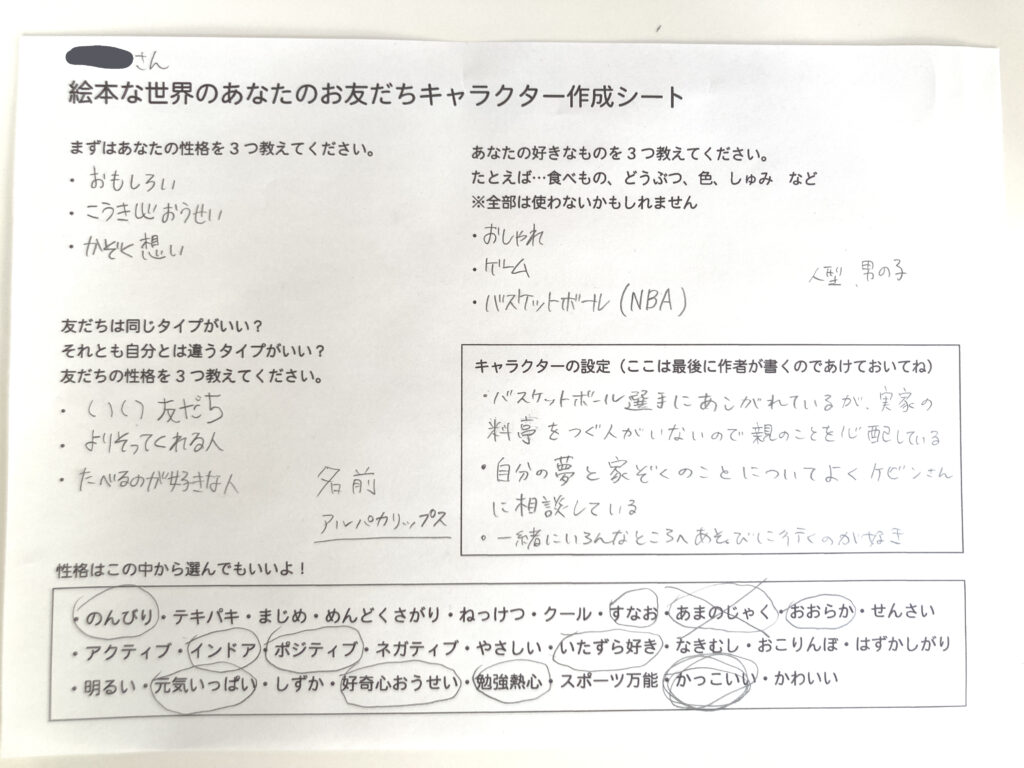 さん
絵本な世界のあなたのお友だちキャラクター作成シート
まずはあなたの性格を3つ教えてください。
・おもしろい
・こうき心おうせい
・かぞく想い
あなたの好きなものを3つ教えてください。
たとえば…食べもの、どうぶつ、色、しゅみ　など
※全部は使わないかもしれません
・おしゃれ
・ゲーム
・バスケットボール(NBA)
人型、男の子
友だちは同じタイプがいい？
それとも自分とは違うタイプがいい？
友だちの性格を3つ教えてください。
・いい友だち
・よりそってくれる人
・たべるのが好きな人
名前
アルパカリップス
キャラクターの設定（ここは最後に作者が書くのであけておいてね）
・バスケットボール選手にあこがれているが、実家の
料亭をつぐ人がいないので親のことを心配している
・自分の夢と家ぞくのことについてよくケビンさん
に相談している
・一緒にいろんなところへあそびに行くのが好き
性格はこの中から選んでもいいよ！
・のんびり・テキパキ・まじめ・めんどくさがり・ねっけつ・クール・すなお・あまのじゃく・おおらか・せんさい
・アクティブ・インドア・ポジティブ・ネガティブ・やさしい・いたずら好き・なきむし・おこりんぼ・はずかしがり
・明るい・元気いっぱい・しずか・好奇心おうせい・勉強熱心・スポーツ万能・かっこいい・かわいい